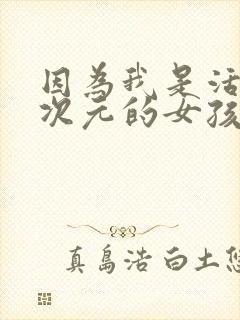 因為我是活
次元的女孩
真島浩 白土悠